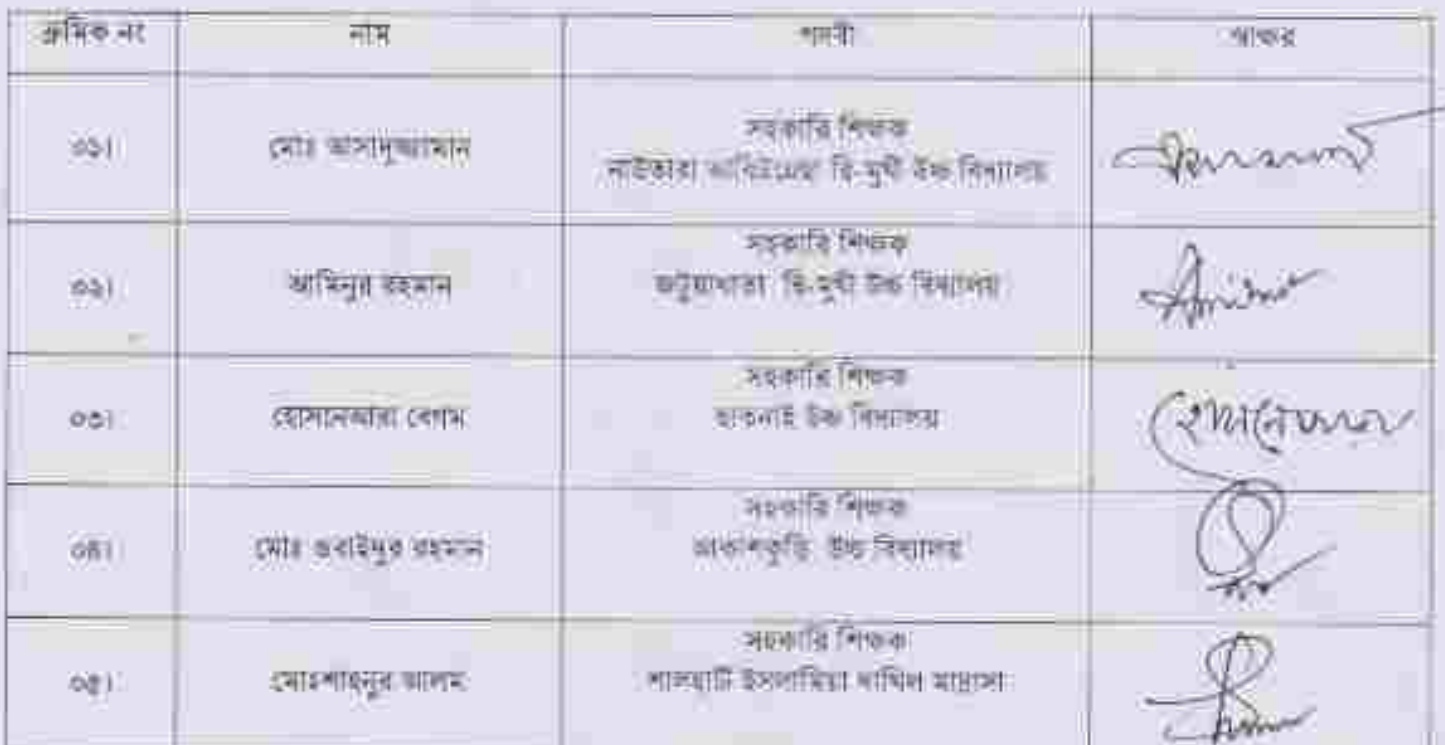 ক্রমিক নং নাম পদবী স্বাক্ষর
০১। মোঃ আসাদুজ্জামান সহকারি শিক্ষক
নাউতারা আবিউন্নেছা দ্বি-মুখী উচ্চ বিদ্যালয়
০২। আমিনুর রহমান সহকারি শিক্ষক
জটুয়াখাতা দ্বি-মুখী উচ্চ বিদ্যালয়
Aminur
০৩। হোসনেআরা বেগম সহকারি শিক্ষক
ছাতনাই উচ্চ বিদ্যালয়
হোসনেআরা
০৪। মোঃ ওবাইদুর রহমান সহকারি শিক্ষক
আকাশকুড়ি উচ্চ বিদ্যালয়
০৫। মোঃশাহনুর আলম সহকারি শিক্ষক
শালহাটি ইসলামিয়া দাখিল মাদ্রাসা